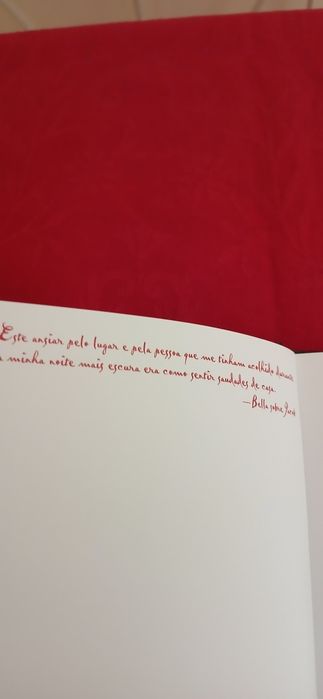 Este ansiar pelo lugar e pela pessoa que me tinham acolhido durante
a minha noite mais escura era como sentir saudades de casa.
—Bella sobre Jacob